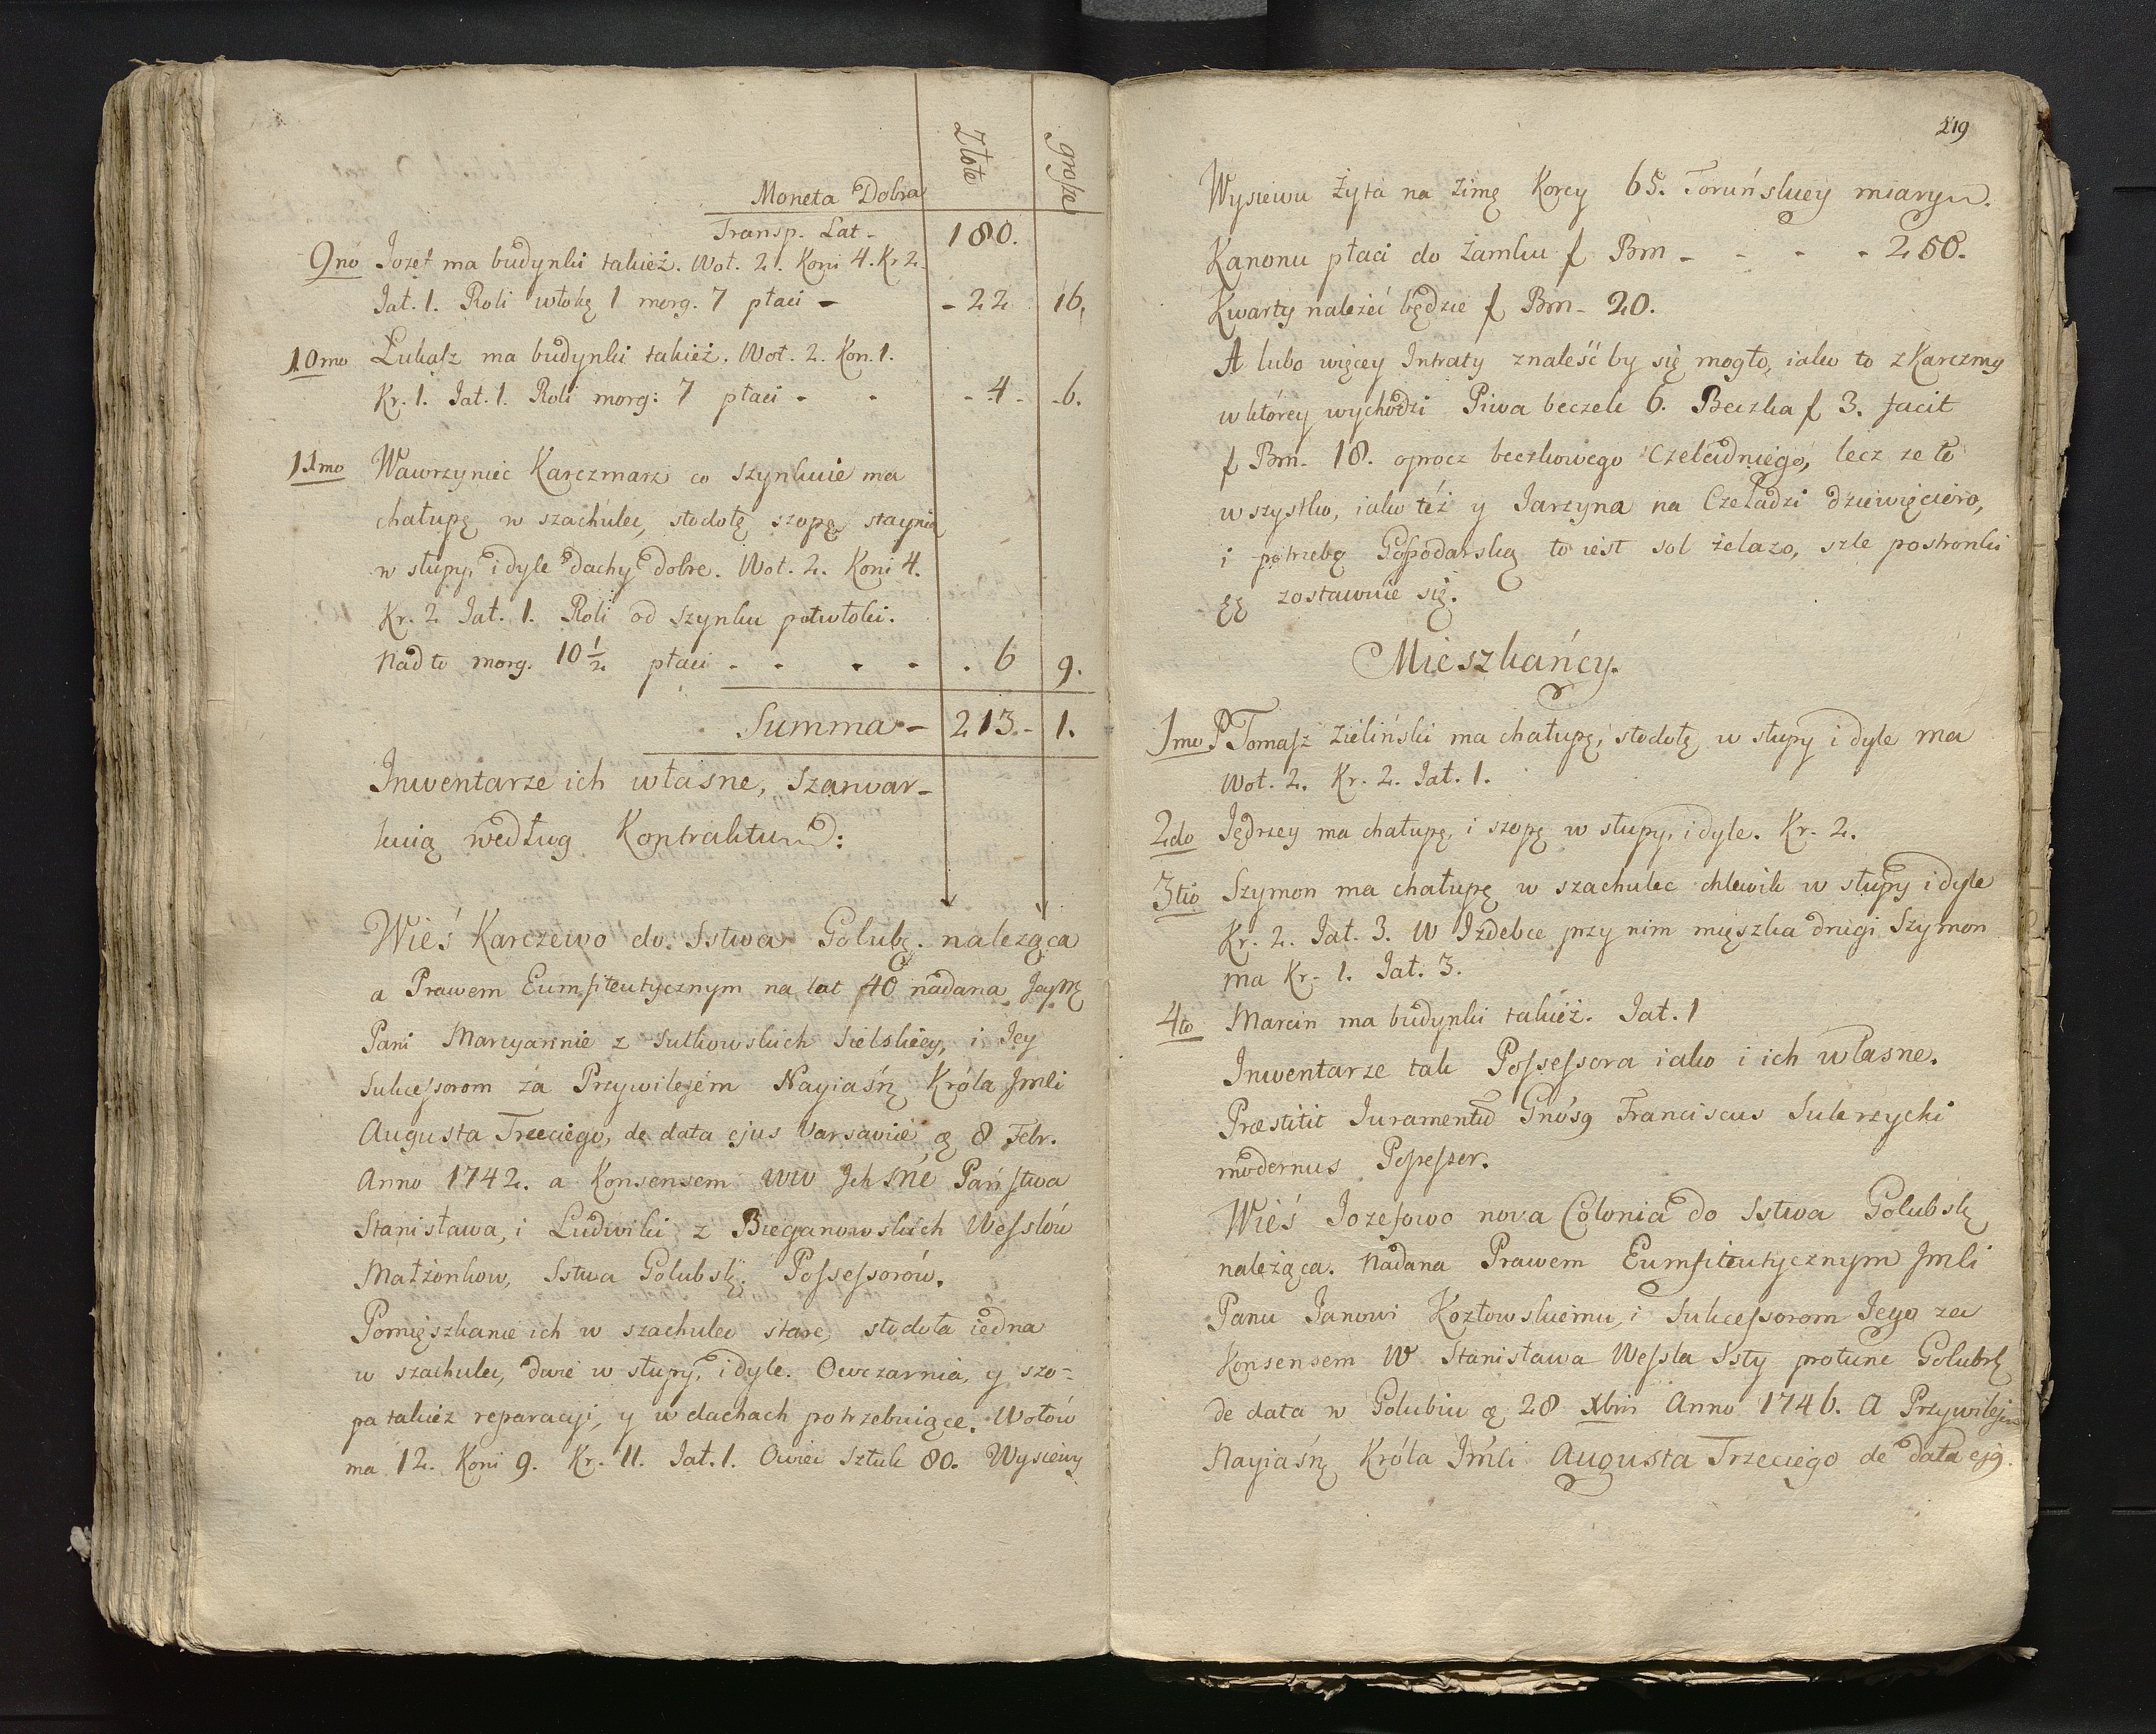 Złote
grosze
Moneta Dobra
Transp. Lat - 180.
9no Jozef ma budynki takież. Woł. 2. Koni 4. Kr 2.
Jał. 1. Roli włokę 1 morg. 7 płaci - - 22 16.
10mo Łukasz ma budynki takież. Woł. 2. Kon. 1.
Kr. 1. Jał. 1. Roli morg: 7 płaci - - - 4 - - 6.
11mo Wawrzyniec Karczmarz co szynkuie ma
chałupę w szachulec, stodołę szopę staynią
w słupy, i dyle dachy dobre. Woł. 2. Koni 4.
Kr. 2 Jał. 1. Roli od szynku połwłoki.
nad to morg. 10 1/2 płaci - - - - . 6 9.
Summa - 213 - 1.
Inwentarze ich własne, Szarwar-
kuią według Kontraktu:
Wieś Karczewo do Sstwa Golubę. naleząca
a Prawem Eumfiteutycznym na lat 40 nadana Jeym
Pani Maryannie z Sulkowskich Sielskiey, i Jey
Sukcessorom za Przywilejem Nayiaśn Króla Jmli
Augusta Trzeciego, de data ejus Varsavie 8 Febr.
Anno 1742. a Konsensem WW Jch Mć Państwa
Stanisława, i Ludwiki z Bieganowskich Wesslów
Małżonkow, Sstwa Golubsk. Possessorów.
Pomięszkanie ich w szachulec stare, stodoła iedna
w szachulec, dwie w słupy, i dyle. Owczarnia, y szo-
pa takież reparacyi, y w dachach potrzebuiące. Wołów
ma 12. Koni 9. Kr. 11. Jał. 1. Owiec Sztuk 80. Wysiewu
219
Wysiewu żyta na zimę Korcy 65. Toruńskiey miary.
Kanonu płaci do Zamku f Bm - - - - 250.
Kwarty należeć będzie f Bm - 20.
A lubo więcey Intraty znaleść by się mogło, iako to z Karczmy
w ktorey wychodzi Piwa beczek 6. Beczka f 3. facit
f Bm - 18. oprocz beczkowego Czeladniego, lecz ze to
wszystko, iako téż y Jarzyna na Czeladzi dziewięcioro,
i potrzebę Gospodarską to iest sol żelazo, szle postronki
zostawuie się.
Mieszkańcy.
1mo P Tomasz Zieliński ma chałupę, stodołę w słupy i dyle má
Woł. 2. Kr. 2. Jał. 1.
2do Jędrzey ma chałupę, i szopę w słupy, i dyle. Kr. 2.
3tio Szymon ma chałupę w szachulec chlewik w słupy i dyle
Kr. 2. Jał. 3. W Izdebce przy nim mięszka drugi Szymon
ma Kr. 1. Jał. 3.
4to Marcin ma budynki takież. Jał. 1
Inwentarze tak Possessora iako i ich własne.
Præstitit Juramentū Gnosg Franciscus Sulerzycki
modernus Possessor.
Wieś Jozefowo nova Colonia do Sstwa Golubsk
należąca. Nadana Prawem Eumfiteutycznym Jmli
Panu Janowi Kozłowskiemu, i Sukcessorom Jego za
Konsensem W Stanisława Wessla Ssty protunc Golubsk
de data w Golubiu 28 Xbris Anno 1746. A Przywilejem
Nayiaśn Króla Jmli Augusta Trzeciego de data ejg.